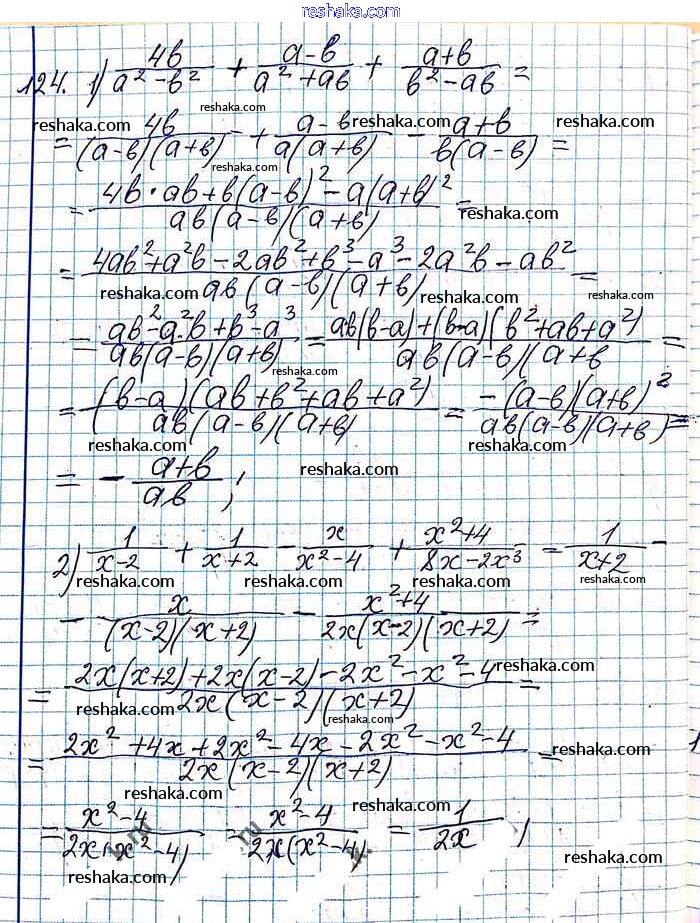 reshaka.com
124. 1) 4b/(a² - b²) + (a - b)/(a² + ab) + (a + b)/(b² - ab) =
reshaka.com
= 4b/((a - b)(a + b)) + (a - b)/(a(a + b)) - (a + b)/(b(a - b)) =
reshaka.com reshaka.com reshaka.com
reshaka.com
= (4b · ab + b(a - b)² - a(a + b)²)/(ab(a - b)(a + b)) =
reshaka.com reshaka.com
= (4ab² + a²b - 2ab² + b³ - a³ - 2a²b - ab²)/(ab(a - b)(a + b)) =
reshaka.com reshaka.com reshaka.com
= (ab² - a²b + b³ - a³)/(ab(a - b)(a + b)) = (ab(b - a) + (b - a)(b² + ab + a²))/(ab(a - b)(a + b =
reshaka.com reshaka.com
= ((b - a)(ab + b² + ab + a²))/(ab(a - b)(a + b)) = (-(a - b)(a + b)²)/(ab(a - b)(a + b)) =
reshaka.com reshaka.com
= - (a + b)/(ab) ;
reshaka.com
2) 1/(x - 2) + 1/(x + 2) - x/(x² - 4) + (x² + 4)/(8x - 2x³) = 1/(x + 2) -
reshaka.com reshaka.com reshaka.com reshaka.com
- x/((x - 2)(x + 2)) - (x² + 4)/(2x(x - 2)(x + 2)) =
reshaka.com reshaka.com
= (2x(x + 2) + 2x(x - 2) - 2x² - x² - 4)/(2x(x - 2)(x + 2)) =
reshaka.com reshaka.com reshaka.com
= (2x² + 4x + 2x² - 4x - 2x² - x² - 4)/(2x(x - 2)(x + 2)) =
reshaka.com reshaka.com
= (x² - 4)/(2x(x² - 4)) = (x² - 4)/(2x(x² - 4)) = 1/(2x) ;
reshaka.com reshaka.com reshaka.com
reshaka.com